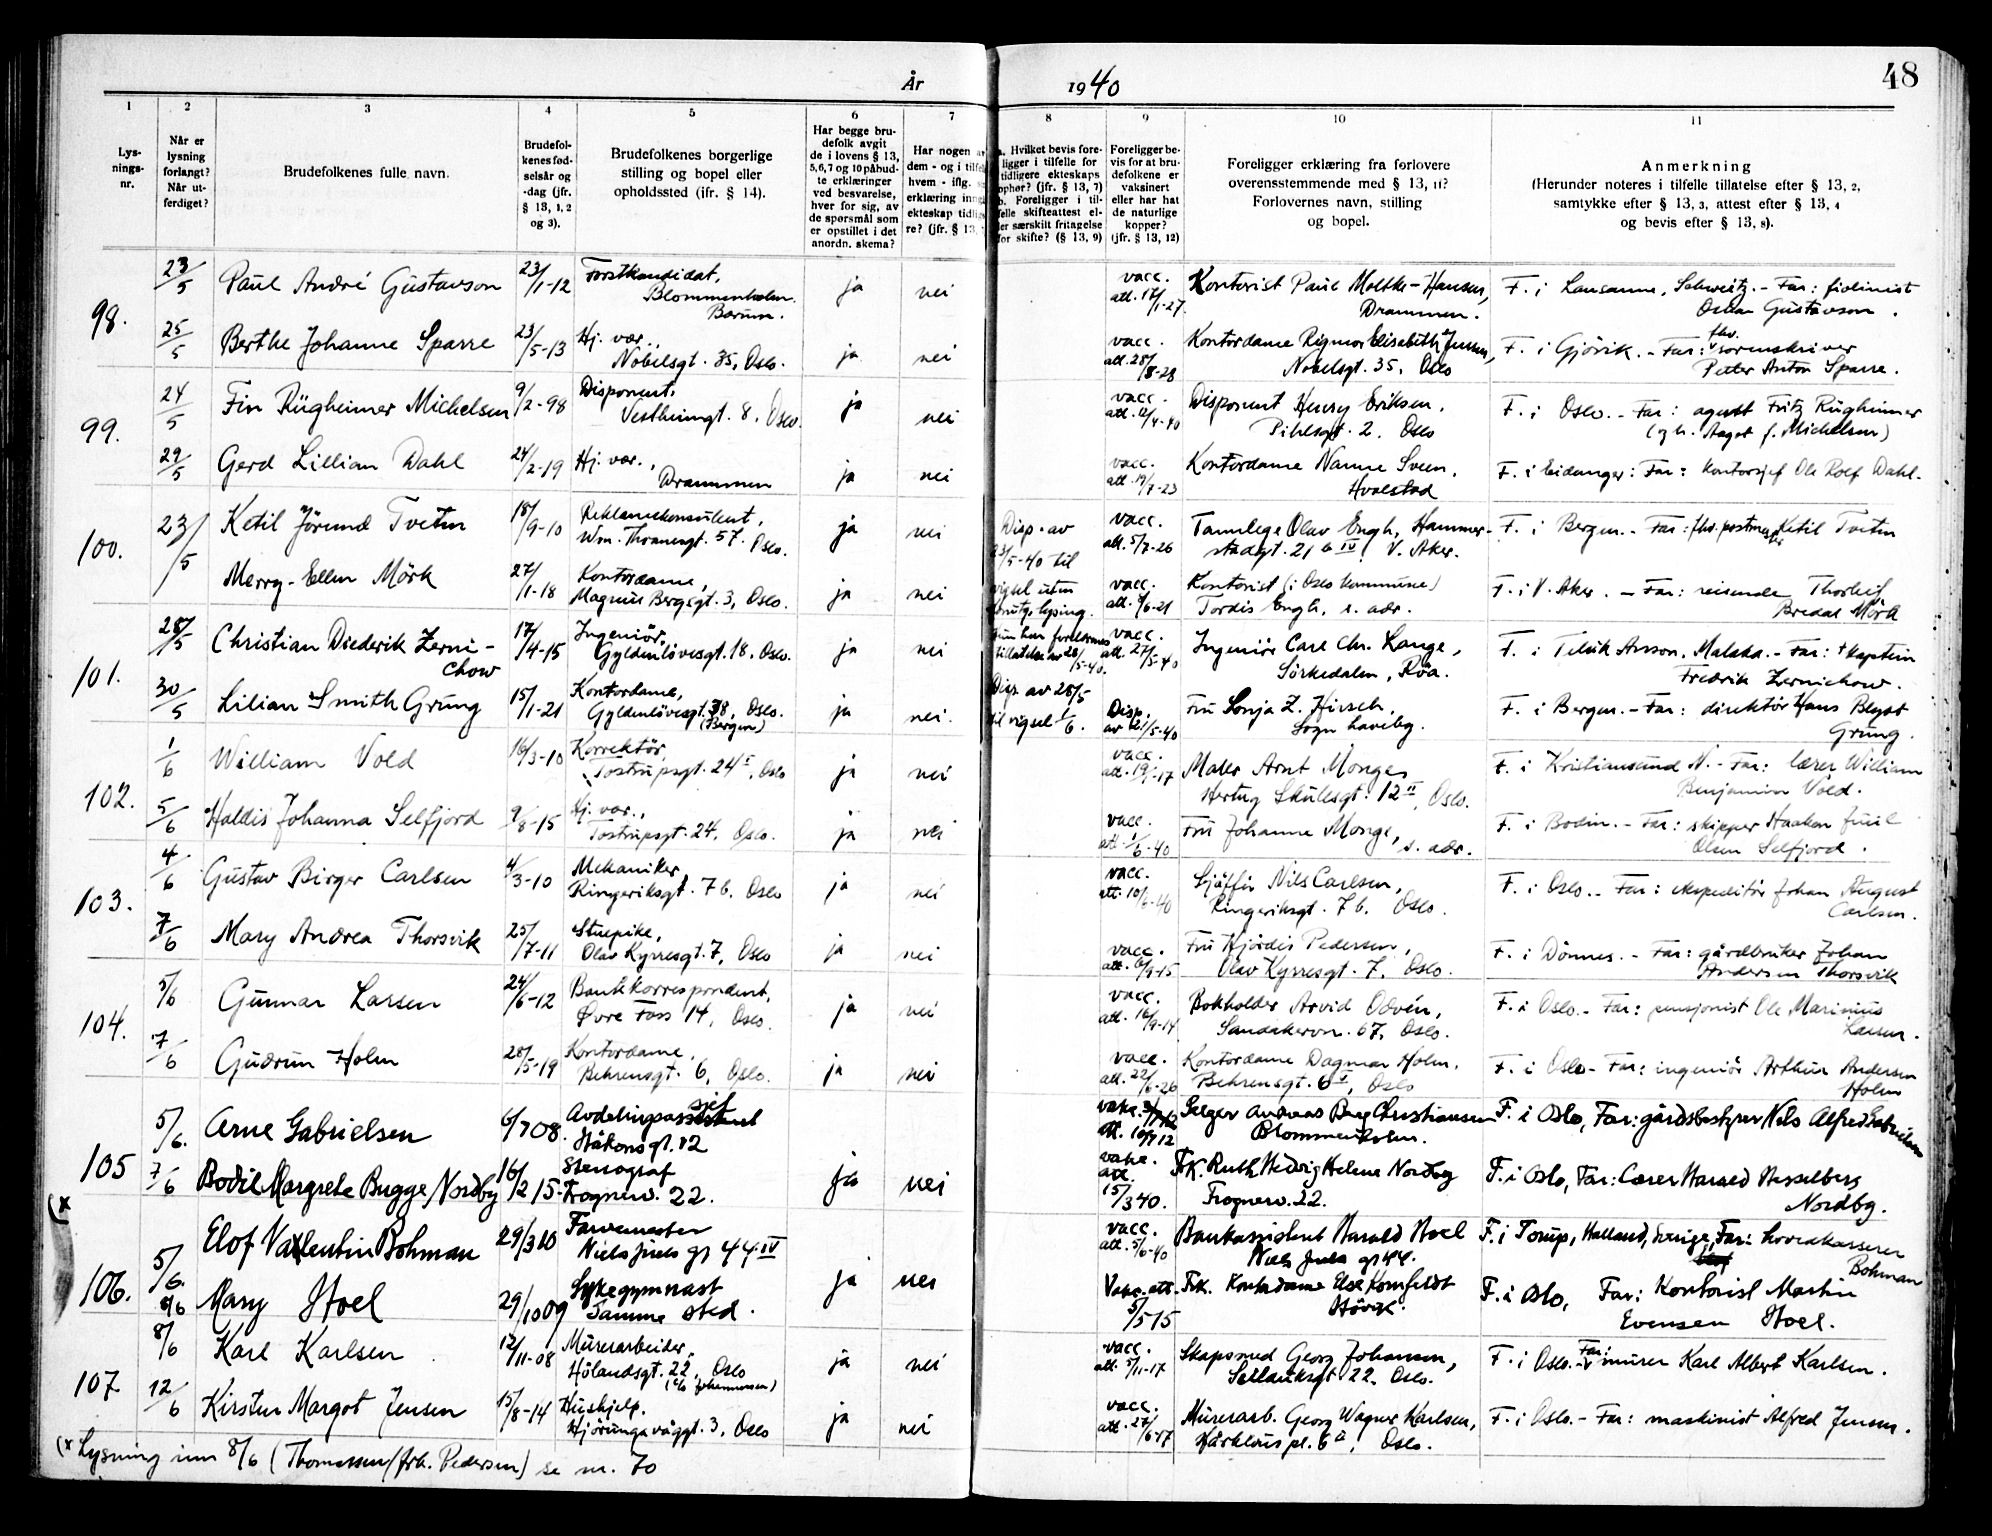 År 1940
48
1 2 3 4 5 6 7 8 9 10 11
Lysnings-nr.
Når er lysning forlangt? Når utferdiget?
Brudefolkenes fulle navn.
Brudefolkenes fødselsår og -dag (jfr. § 13, 1, 2 og 3).
Brudefolkenes borgerlige stilling og bopel eller opholdssted (jfr. § 14).
Har begge brudefolk avgit de i lovens § 13, 5, 6, 7 og 10 påbudte erklæringer ved besvarelse, hver for sig, av de spørsmål som er opstillet i det anordn. skema?
Har nogen
dem - og i
hvem - iflg.
erklæring
ekteskap
re? (jfr. § 13,
Hvilket bevis foreligger i tilfelle for tidligere ekteskaps ophør? (jfr. § 13, 7) b. Foreligger i tilfelle skifteattest eller særskilt fritagelse for skifte? (§ 13, 9)
Foreligger bevis for at brudefolkene er vaksinert eller har hat de naturlige kopper? (jfr. § 13, 12)
Foreligger erklæring fra forlovere overensstemmende med § 13, 11? Forlovernes navn, stilling og bopel.
Anmerkning
(Herunder noteres i tilfelle tillatelse efter § 13, 2, samtykke efter § 13, 3, attest efter § 13, 4 og bevis efter § 13, 8).
98. 23/5 Paul André Gustavson 23/1-12 Forstkandidat, Blommenholm. Bærum. ja nei vacc. att. 17/1-27. Kontorist Paul Moltke-Hansen, Drammen. F. i Lausanne, Schweitz. - Far: fiolinist Oskar Gustavson.
25/5 Berthe Johanne Sparre 23/5-13 Hj. vær., Nobelsgt. 35, Oslo. ja nei vacc. att. 28/8-28 Kontordame Rigmor Elisabeth Jensen, Nobelsgt. 35, Oslo F. i Gjövik. - Far: fhv. sorenskriver Peter Anton Sparre.
99. 24/5 Fin Rügheimer Michelsen 9/2-98 Disponent, Vestheimgt. 8, Oslo. ja nei vacc. att. 12/4-40 Disponent Henry Eriksen, Pihlsgt. 2. Oslo F. i Oslo. - Far: agent Fritz Rügheimer (og h. Aagot f. Michelsen)
29/5 Gerd Lillian Dahl 24/2-19 Hj. vær., Drammen ja nei vacc. att. 19/7-23 Kontordame Nanne Sveen, Hvalstad F. i Eidanger: Far: kontorsjef Ole Rolf Dahl.
100. 23/5 Ketil Jörund Tvetm 18/9-10 Reklamekonsulent, Wm. Thranesgt. 57. Oslo. ja nei Disp. av 23/5-40 til vigsel uten lysing. vacc. att. 5/7-26 Tannlege Olav Engh, Hammerstadgt. 21 b IV, V. Aker. F. i Bergen. - Far: fhv. postmester Ketil Tvetm
Merry-Ellen Mörk 27/1-18 Kontordame, Magnus Bergsgt. 3, Oslo. ja nei vacc. att. 9/6-21 Kontorist (i Oslo kommune) Tordis Engh, s. adr. F. i V. Aker. - Far: reisende Thorleif Bredal Mörk
101. 28/5 Christian Diederik Zernichow 17/4-15 Ingeniör, Gyldenlövesgt. 18, Oslo. ja nei tillatelse av 28/5-40. vacc. att. 27/5-40 Ingeniör Carl Chr. Lange, Sörkedalen, Röa. F. i Anson, Malaka. - Far: † kaptein Fredrik Zernichow.
30/5 Lilian Smith Grung 15/1-21 Kontordame, Gyldenlövesgt. 38, Oslo. (Bergen) ja nei. Disp. av 28/5 til vigsel 1/6. Disp. av 21/5-40 Fru Sonja Z. Hirsch, Sogn haveby. F. i Bergen. - Far: direktör Hans Blyst Grung.
102. 1/6 William Vold 16/3-10 Korrektör, Tostrupsgt. 24 I, Oslo ja nei vacc. att. 19/1-17 Maler Arnt Monge, Hertug Skulesgt. 12 II, Oslo. F. i Kristiansund N. - Far: lærer William Benjamin Vold.
5/6 Haldis Johanna Selfjord 9/8-15 Hj. vær., Tostrupsgt. 24, Oslo. ja nei vacc. att. 1/6-40 Fru Johanne Monge, s. adr. F. i Bodin. - Far: skipper Haakon Juul Olsen Selfjord.
103. 4/6 Gustav Birger Carlsen 4/3-10 Mekaniker, Ringeriksgt. 7 b, Oslo ja nei vacc. att. 10/6-40 Sjåför Nils Carlsen, Ringeriksgt. 7 b, Oslo. F. i Oslo. - Far: ekspeditör Johan August Carlsen.
7/6 Mary Andrea Thorsvik 25/7-11 Stuepike, Olav Kyrresgt. 7, Oslo ja nei vacc. att. 6/9-15 Fru Hjördis Pedersen, Olav Kyrresgt. 7, Oslo. F. i Dönnes. - Far: gårdbruker Johan Andersen Thorsvik
104. 5/6 Gunnar Larsen 24/6-12 Bankkorrespondent, Övre Foss 14, Oslo. ja nei vacc. att. 16/9-14 Bokholder Arvid Odvén, Sandakervn. 67, Oslo. F. i Oslo. - Far: pensjonist Ole Marinius Larsen.
7/6 Gudrun Holm 28/5-19 Kontordame, Behrensgt. 6, Oslo. ja nei vacc. att. 22/6-26 Kontordame Dagmar Holm, Behrensgt. 6 I, Oslo F. i Oslo - Far: ingeniör Arthur Andersen Holm
105 5/6. Arne Gabrielsen 6/7 08. Avdelingssjef Håkonsgt. 12 vakc. att. 10/9 12 Selger Andreas Berg Christiansen Blommenholm. F. i Oslo, Far: gårdsbestyrer Nils Alfred Gabrielsen
7/6 Bodil Margrete Bugge Nordby 16/2 15 Stenograf Frognerv. 22. ja nei vakc. att. 15/3 40. Frk. Ruth Hedvig Helene Nordby Frognerv. 22. F. i Oslo, Far: Lærer Harald Hesselberg Nordby.
(x
106. 5/6. Elof Valentin Bohman 29/3 10 Farvemester Niels Juels gt 44 IV ja nei vacc. att. 5/6-40 Bankassistent Harald Hoel Niels Juels gt 44. F. i Torup, Halland, Sverige, Far: hovedkasserer Bohman
8/6 Mary Hoel 29/10 09 Sykegymnast Samme sted. Vakc. att. 5/5 15 Frk. Kontordame Else Kornfeldt Hövik. F. i Oslo, Far: Kontorist Martin Evensen Hoel.
107 8/6 Karl Karlsen 12/11-08 Murerarbeider, Hölandsgt. 22, Oslo (c/o Johannessen) ja nei vacc. att. 5/11-17 Skapsmed Georg Johansen, Selländsgt 22. Oslo. F. i Oslo. - Far: murer Karl Albert Karlsen.
12/6 Kirsten Margot Jensen 15/8-14 Hushjelp. Hjörungavåggt. 3, Oslo ja nei vacc. att. 27/6-17 Murerarb. Georg Wagner Karlsen, Hårkløus pl. 6 II, Oslo. F. i Oslo. - Far: maskinist Alfred Jensen.
(x Lysning inn 8/6 (Thomassen/frk. Pedersen) se nr. 70